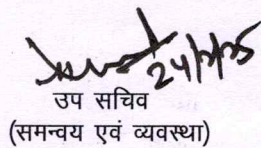 24/7/25
उप सचिव
(समन्वय एवं व्यवस्था)